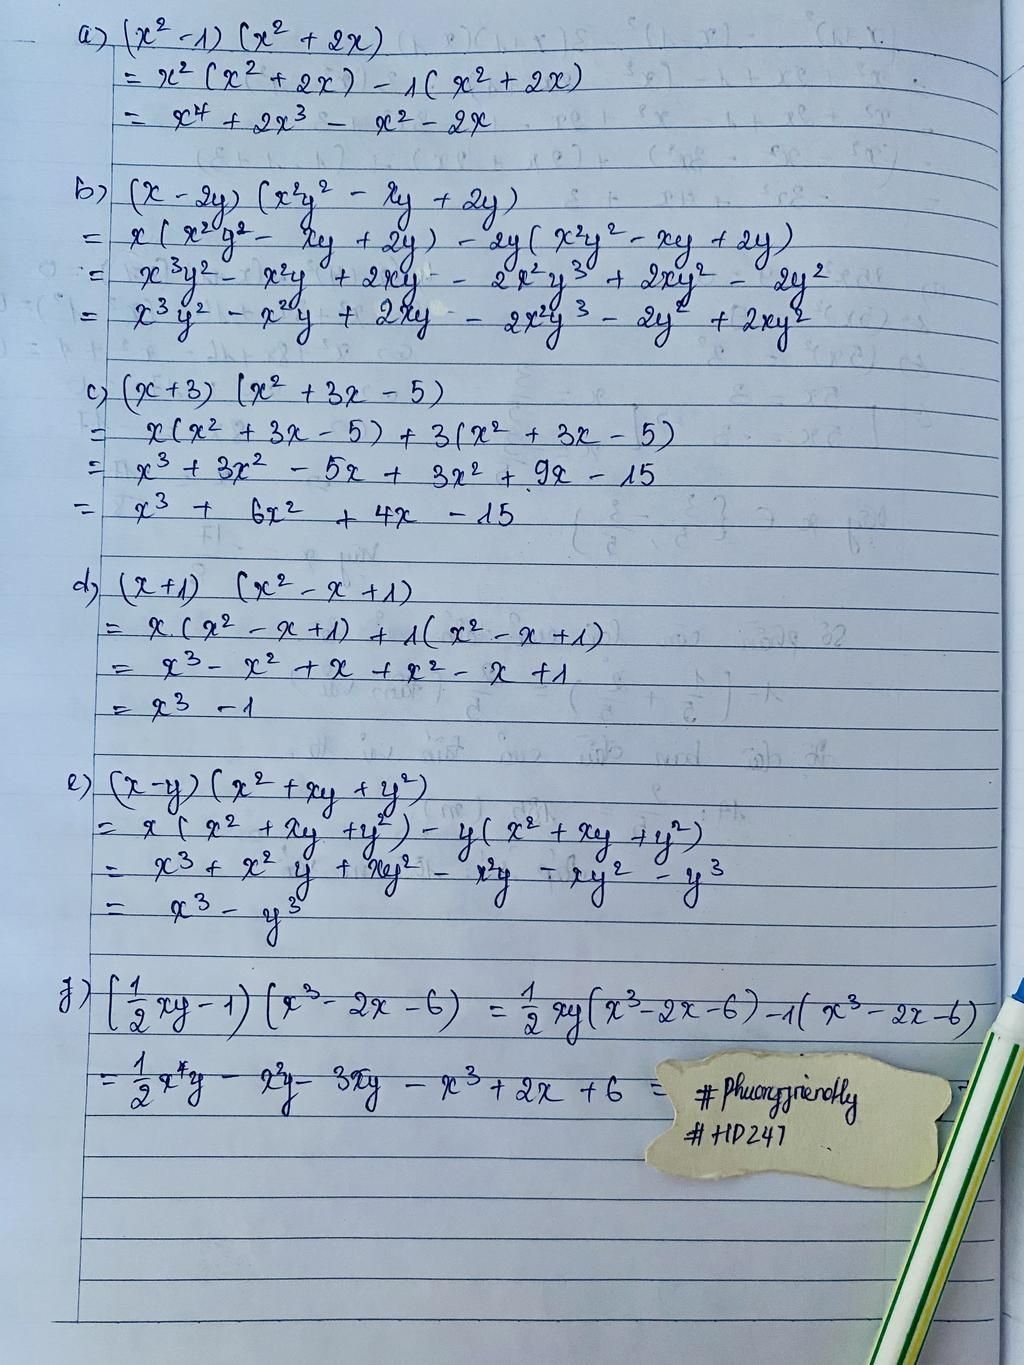 a) (x² - 1) (x² + 2x)
= x² (x² + 2x) - 1( x² + 2x)
= x⁴ + 2x³ - x² - 2x
b) (x - 2y) (x²y² - xy + 2y)
= x( x²y² - xy + 2y) - 2y( x²y² - xy + 2y)
= x³y² - x²y + 2xy - 2x²y³ + 2xy² - 2y²
= x³y² - x²y + 2xy - 2x²y³ - 2y² + 2xy²
c) (x + 3) (x² + 3x - 5)
= x(x² + 3x - 5) + 3(x² + 3x - 5)
= x³ + 3x² - 5x + 3x² + 9x - 15
= x³ + 6x² + 4x - 15
d) (x + 1) (x² - x + 1)
= x.(x² - x + 1) + 1( x² - x + 1)
= x³ - x² + x + x² - x + 1
= x³ - 1
e) (x - y) ( x² + xy + y²)
= x ( x² + xy + y²) - y( x² + xy + y²)
= x³ + x²y + xy² - x²y - xy² - y³
= x³ - y³
f) (1/2 xy - 1) (x³ - 2x - 6) = 1/2 xy(x³ - 2x - 6) - 1( x³ - 2x - 6)
= 1/2 x⁴y - x²y - 3xy - x³ + 2x + 6 =
#phuongfriendly
#HD247